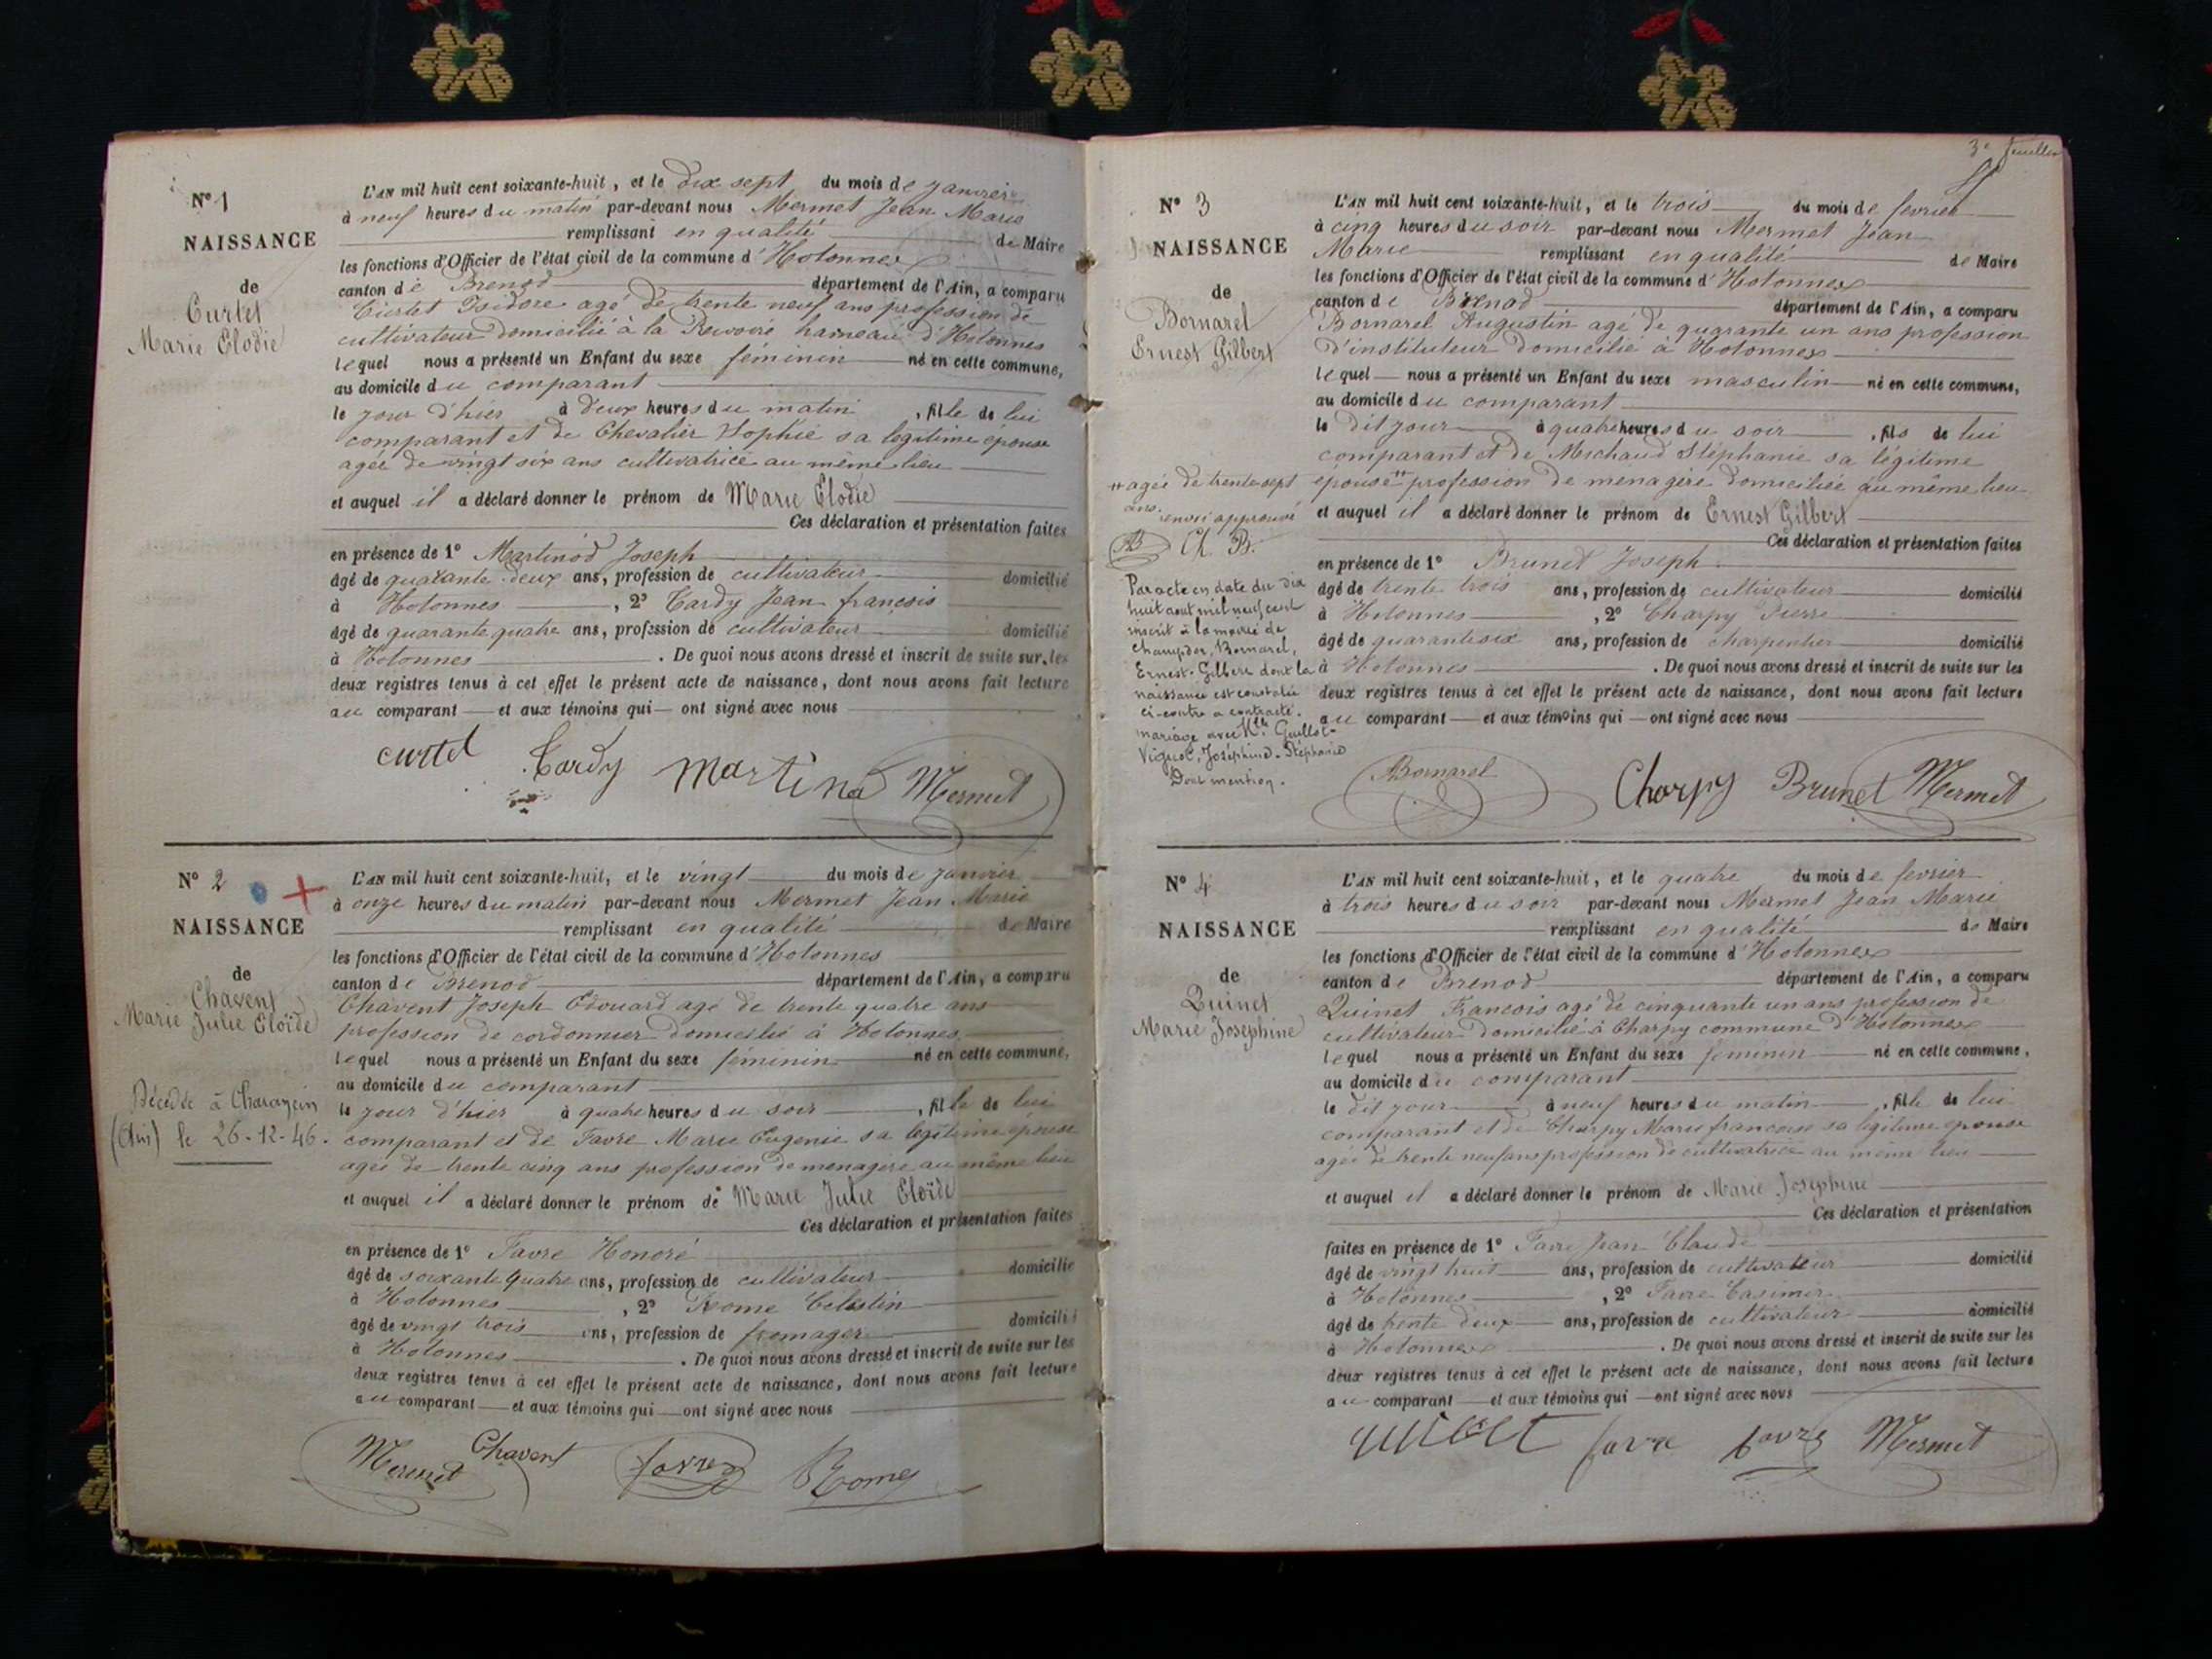 N° 1
NAISSANCE
de
Curtet
Marie Elodie
L'AN mil huit cent soixante-huit, et le dix sept du mois de janvier
à neuf heures du matin par-devant nous Mermet Jean Marie
remplissant en qualité de Maire
les fonctions d'Officier de l'état civil de la commune d'Hotonnes
canton de Brenod département de l'Ain, a comparu
Curtet Isidore agé de trente neuf ans profession de
cultivateur domicilié à la Rivoire hameau d'Hotonnes
lequel nous a présenté un Enfant du sexe féminin né en cette commune,
au domicile du comparant
le jour d'hier à deux heures du matin, fille de lui
comparant et de Chevalier Sophie sa légitime épouse
agée de vingt six ans cultivatrice au même lieu
et auquel il a déclaré donner le prénom de Marie Elodie
Ces déclaration et présentation faites
en présence de 1° Martinod Joseph
âgé de quarante deux ans, profession de cultivateur domicilié
à Hotonnes, 2° Tardy Jean françois
âgé de quarante quatre ans, profession de cultivateur domicilié
à Hotonnes. De quoi nous avons dressé et inscrit de suite sur les
deux registres tenus à cet effet le présent acte de naissance, dont nous avons fait lecture
au comparant et aux témoins qui ont signé avec nous
curtet Tardy Martinod Mermet
N° 2
NAISSANCE
de
Chavent
Marie Julie Eloïde
Décédée à Charancin
(Ain) le 26-12-46.
L'AN mil huit cent soixante-huit, et le vingt du mois de janvier
à onze heures du matin par-devant nous Mermet Jean Marie
remplissant en qualité de Maire
les fonctions d'Officier de l'état civil de la commune d'Hotonnes
canton de Brenod département de l'Ain, a comparu
Chavent Joseph Edouard agé de trente quatre ans
profession de cordonnier domicilié à Hotonnes
lequel nous a présenté un Enfant du sexe féminin né en cette commune,
au domicile du comparant
le jour d'hier à quatre heures du soir, fille de lui
comparant et de Favre Marie Eugenie sa légitime épouse
agée de trente cinq ans profession de menagere au même lieu
et auquel il a déclaré donner le prénom de Marie Julie Eloïde
Ces déclaration et présentation faites
en présence de 1° Favre Honoré
âgé de soixante quatre ans, profession de cultivateur domicilié
à Hotonnes, 2° Rome Celestin
âgé de vingt trois ans, profession de fromager domicilié
à Hotonnes. De quoi nous avons dressé et inscrit de suite sur les
deux registres tenus à cet effet le présent acte de naissance, dont nous avons fait lecture
au comparant et aux témoins qui ont signé avec nous
Mermet Chavent favre Rome
3e feuillet
N° 3
NAISSANCE
de
Bornarel
Ernest Gilbert
L'AN mil huit cent soixante-huit, et le trois du mois de fevrier
à cinq heures du soir par-devant nous Mermet Jean
Marie remplissant en qualité de Maire
les fonctions d'Officier de l'état civil de la commune d'Hotonnes
canton de Brenod département de l'Ain, a comparu
Bornarel Augustin agé de quarante un ans profession
d'instituteur domicilié à Hotonnes
lequel nous a présenté un Enfant du sexe masculin né en cette commune,
au domicile du comparant
le dit jour à quatre heures du soir, fils de lui
comparant et de Michaud Stéphanie sa légitime
épouse # profession de ménagère domiciliée au même lieu
# agée de trente sept
ans. renvoi approuvé
AB Ch. B.
et auquel il a déclaré donner le prénom de Ernest Gilbert
Ces déclaration et présentation faites
en présence de 1° Brunet Joseph
âgé de trente trois ans, profession de cultivateur domicilié
à Hotonnes, 2° Charpy Pierre
âgé de quarante six ans, profession de charpentier domicilié
à Hotonnes. De quoi nous avons dressé et inscrit de suite sur les
deux registres tenus à cet effet le présent acte de naissance, dont nous avons fait lecture
au comparant et aux témoins qui ont signé avec nous
Par acte en date du dix
huit aout mil neuf cent
inscrit à la mairie de
Champdor, Bornarel,
Ernest-Gilbert dont la
naissance est constatée
ci-contre a contracté
mariage avec Mlle Guillot-
Vignot, Joséphine-Stéphanie
Dont mention.
Bornarel Charpy Brunet Mermet
N° 4
NAISSANCE
de
Quinet
Marie Josephine
L'AN mil huit cent soixante-huit, et le quatre du mois de fevrier
à trois heures du soir par-devant nous Mermet Jean Marie
remplissant en qualité de Maire
les fonctions d'Officier de l'état civil de la commune d'Hotonnes
canton de Brenod département de l'Ain, a comparu
Quinet Francois agé de cinquante un ans profession de
cultivateur domicilié à Charpy commune d'Hotonnes
lequel nous a présenté un Enfant du sexe féminin né en cette commune,
au domicile du comparant
le dit jour à neuf heures du matin, fille de lui
comparant et de Charpy Marie francoise sa légitime épouse
agée de trente neuf ans profession de cultivatrice au même lieu
et auquel il a déclaré donner le prénom de Marie Josephine
Ces déclaration et présentation
faites en présence de 1° Favre Jean Claude
âgé de vingt huit ans, profession de cultivateur domicilié
à Hotonnes, 2° Favre Casimir
âgé de trente deux ans, profession de cultivateur domicilié
à Hotonnes. De quoi nous avons dressé et inscrit de suite sur les
deux registres tenus à cet effet le présent acte de naissance, dont nous avons fait lecture
au comparant et aux témoins qui ont signé avec nous
quinet favre favre Mermet